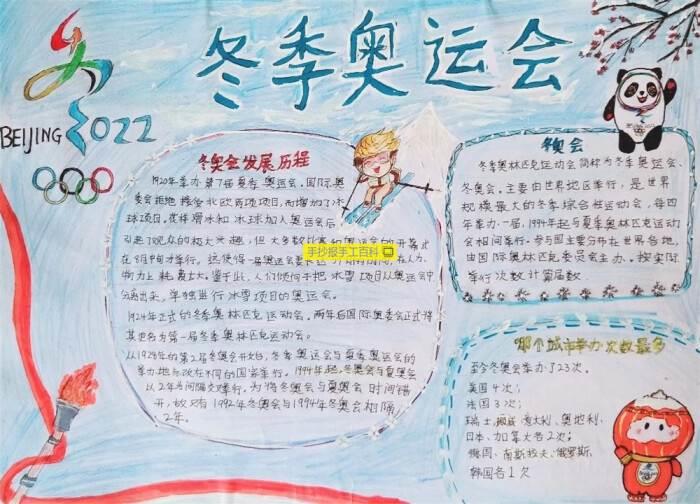 冬季奥运会
BEIJING 2022
冬奥会发展历程
1920年举办第7届夏季奥运会。国际奥
委会拒绝接受北欧两项项目,而增加了冰
球项目,花样滑冰和冰球加入奥运会后,
引起了观众的极大兴趣,但大多数比赛和奥运会的开幕式
在8月中旬才举行。这使得一届奥运会要
物力上耗费太大。鉴于此,人们倾向于把冰雪项目从奥运会中
分离出来,单独进行冰雪项目的奥运会。
1924年正式的冬季奥林匹克运动会。两年后国际奥委会正式将
其更名为第一届冬季奥林匹克运动会。
从1928年的第2届冬奥会开始,冬季奥运会与夏季奥运会的
举办地点改在不同的国家举行。1994年起,冬奥会与夏奥会
以2年为间隔交叉举行。为将冬奥会与夏奥会时间错
开,故只有1992年冬奥会与1994年冬奥会相隔
2年。
手抄报手工百科
冬奥会
冬季奥林匹克运动会简称为冬季奥运会、
冬奥会。主要由世界地区举行,是世界
规模最大的冬季综合性运动会,每四
年举办一届,1994年起与夏季奥林匹克运动
会相间举行。参与国主要分布在世界各地,
由国际奥林匹克委员会主办。按实际
举行次数计算届数。
哪个城市举办次数最多
至今冬奥会举办了23次。
美国4次;
法国3次;
瑞士、挪威、意大利、奥地利、
日本、加拿大各2次;
德国、南斯拉夫、俄罗斯、
韩国各1次